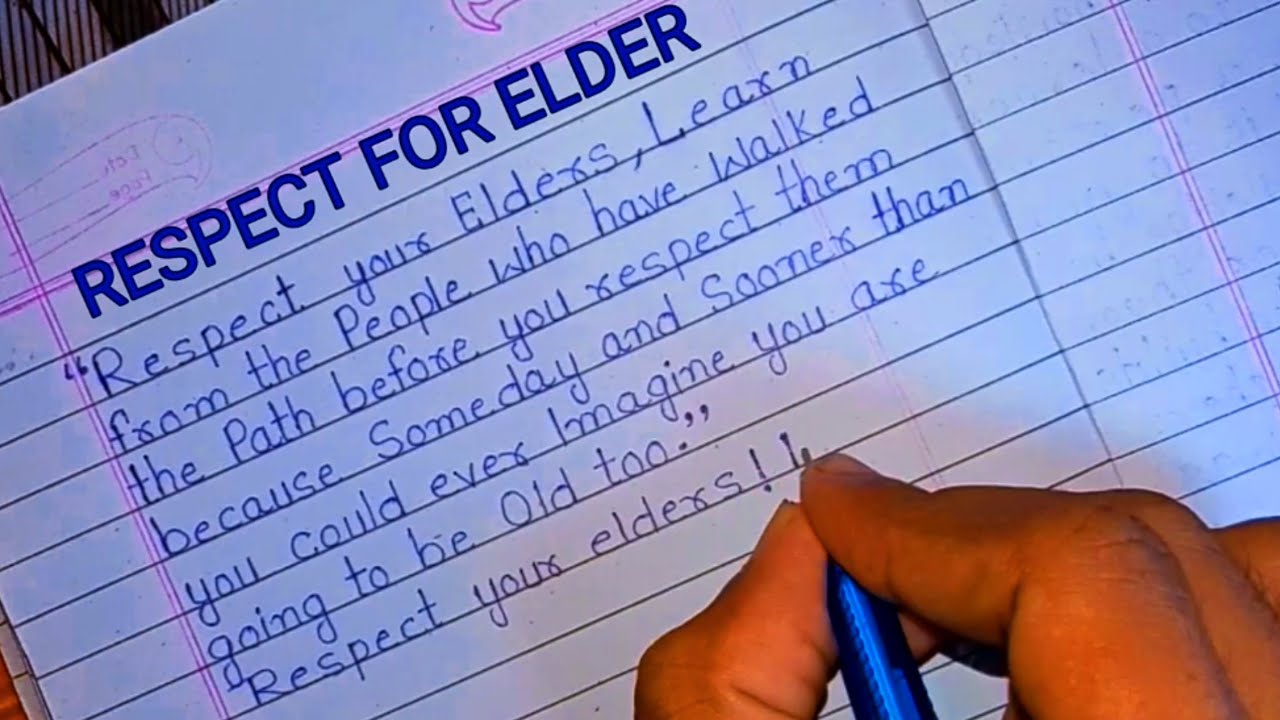 RESPECT FOR ELDER
“Respect your Elders, Learn
from the People who have walked
the Path before you respect them
because Someday and Sooner than
you could ever Imagine you are
going to be Old too.”
Respect your elders!!